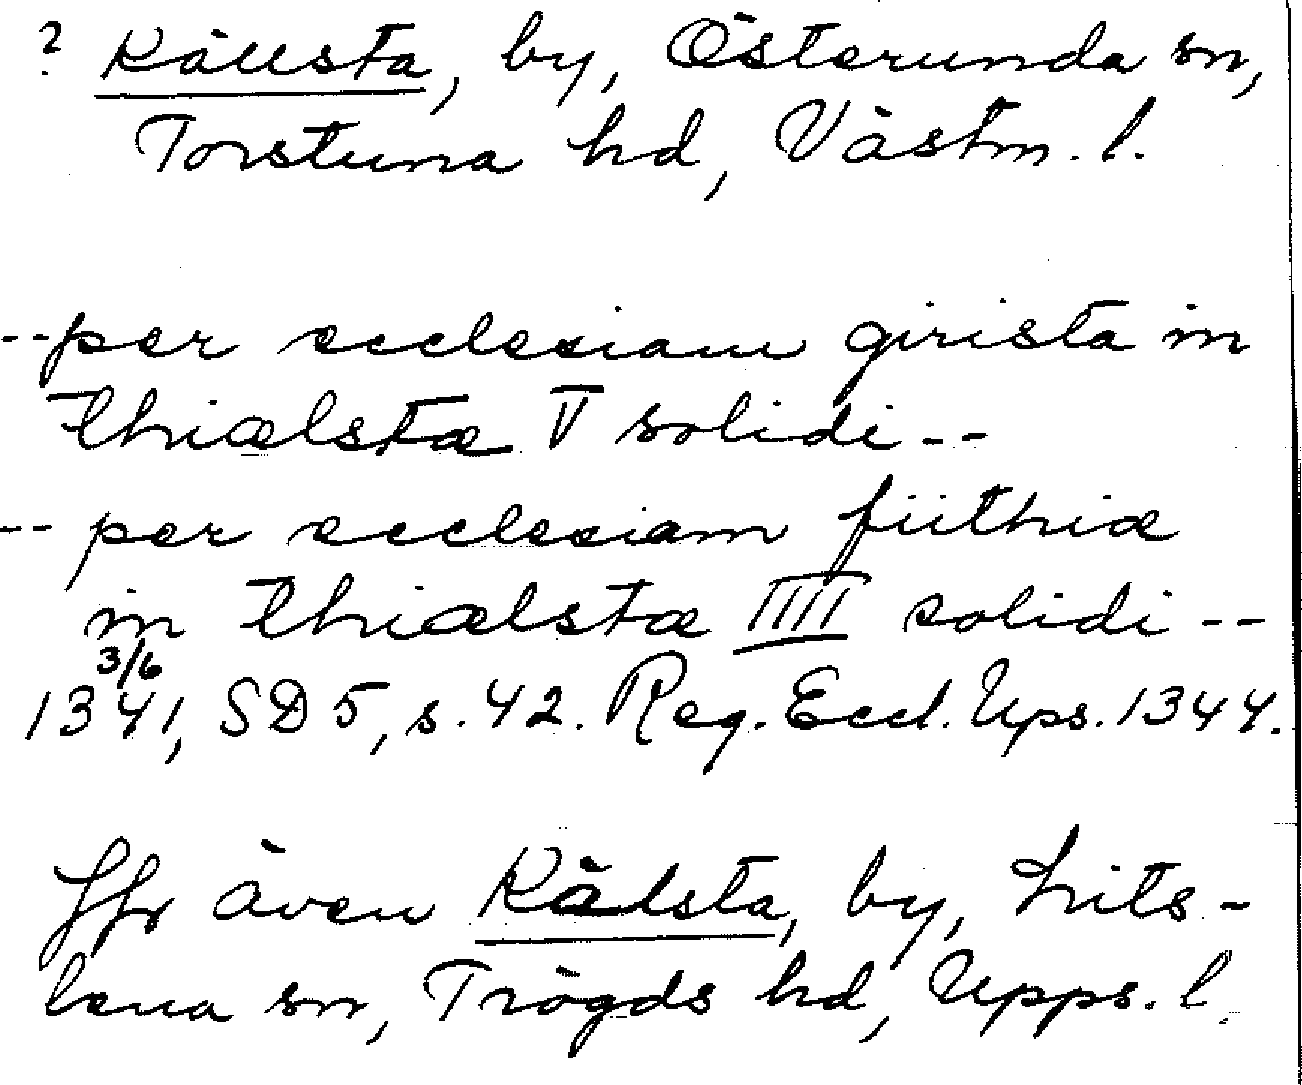 ? Källsta, by, Österunda sn,
Torstuna hd, Västm. l.
--per ecclesiam girista in
thiælstæ V solidi--
--per ecclesiam fiithiæ
in thiælstæ IIII solidi--
3/6
1341, SD 5, s. 42. Reg. Eccl. Ups. 1344.
Jfr även Kälsta, by, Lits-
lena sn, Trögds hd, Upps. l.